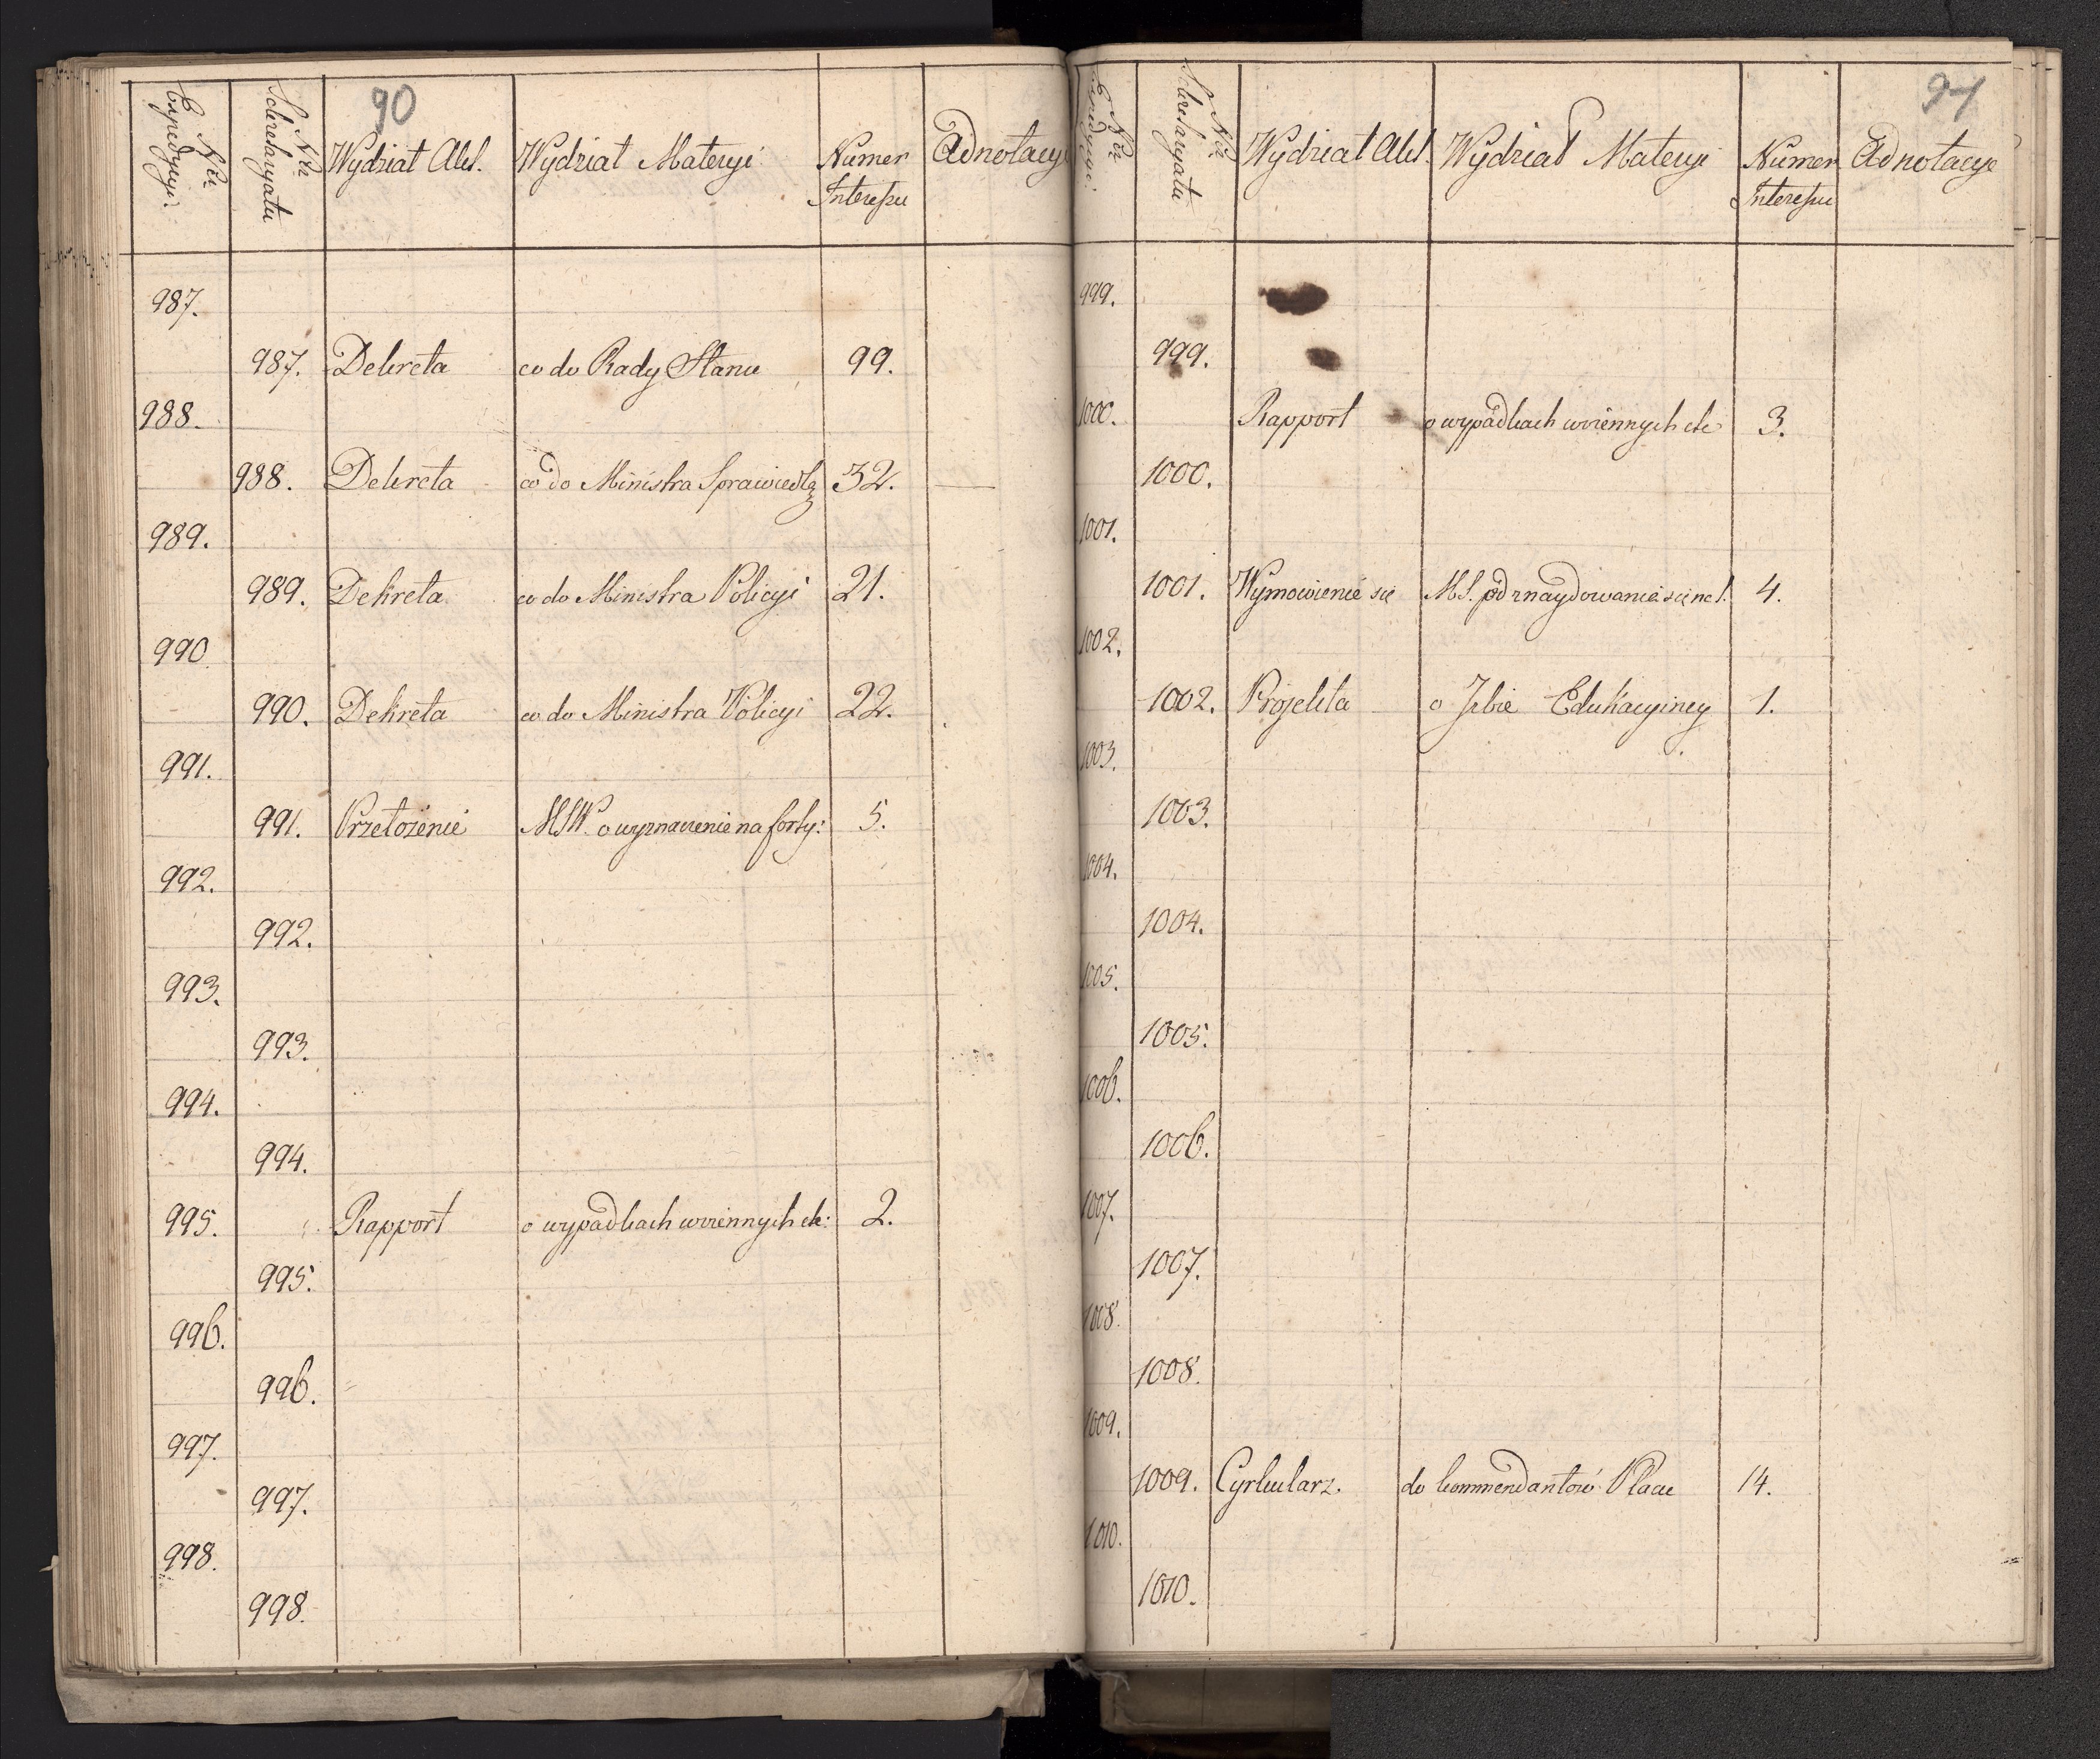 90
Nra Expedycyi: Nra Sekretaryatu Wydział Akt. Wydział Materyi Numer Interessu Adnotacye
987.
987. Dekreta co do Rady Stanu 99.
988.
988. Dekreta co do Ministra Sprawiedlą 32.
989.
989. Dekreta co do Ministra Policyi 21.
990
990. Dekreta co do Ministra Policyi 22.
991.
991. Przełożenie MSW. o wyznaczenie na forty: 5.
992.
992.
993.
993.
994.
994.
995. Rapport o wypadkach woiennych etc: 2.
995.
996.
996.
997.
997.
998.
998.
91
Nra Expedycyi: Nra Sekretaryatu Wydział Akt. Wydział Materyi Numer Interessu Adnotacye
999.
999.
1000. Rapport o wypadkach woiennych etc 3.
1000.
1001.
1001. Wymowienie się MS. od znaydowania się na 4.
1002.
1002. Projekta o Izbie Edukacyiney 1.
1003.
1003.
1004.
1004.
1005.
1005.
1006.
1006.
1007.
1007.
1008.
1008.
1009.
1009. Cyrkularz. do kommendantów Placu 14.
1010.
1010.